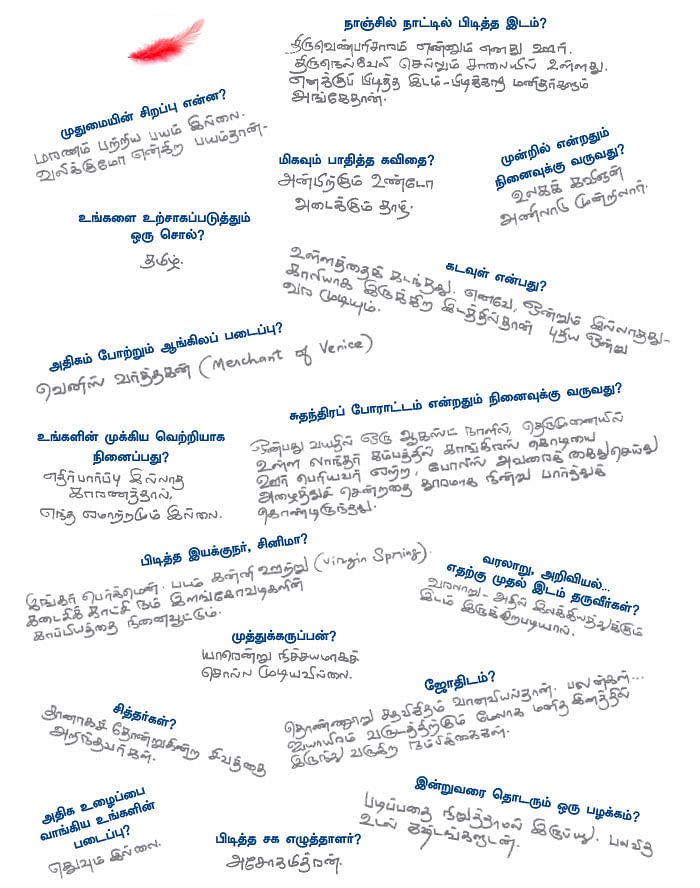 நாஞ்சில் நாட்டில் பிடித்த இடம்?
திருவெண்பரிசாரம் என்னும் எனது ஊர்.
திருநெல்வேலி செல்லும் சாலையில் உள்ளது.
எனக்குப் பிடித்த இடம் - பிடிக்காத மனிதர்களும்
அங்கேதான்.
முதுமையின் சிறப்பு என்ன?
மரணம் பற்றிய பயம் இல்லை.
வலிக்குமோ என்கிற பயம்தான் -
மிகவும் பாதித்த கவிதை?
அன்பிற்கும் உண்டோ
அடைக்கும் தாழ்
முன்றில் என்றதும்
நினைவுக்கு வருவது?
உலகக் கவிஞன்
அணிலாடு முன்றிலார்.
உங்களை உற்சாகப்படுத்தும்
ஒரு சொல்?
தமிழ்.
கடவுள் என்பது?
உள்ளத்தைக் கடந்தது. எனவே, ஒன்றும் இல்லாதது -
காலியாக இருக்கிற இடத்தில்தான் புதிய ஒன்று
வர முடியும்.
அதிகம் போற்றும் ஆங்கிலப் படைப்பு?
வெனிஸ் வர்த்தகன் (Merchant of Venice)
சுதந்திரப் போராட்டம் என்றதும் நினைவுக்கு வருவது?
ஒன்பது வயதில் ஒரு ஆகஸ்ட் நாளில், தெருமுனையில்
உள்ள லாந்தர் கம்பத்தில் காங்கிரஸ் கொடியை
ஊர் பெரியவர் ஏற்ற, போலீஸ் அவரைக் கைதுசெய்து
அழைத்துச் சென்றதை தூரமாக நின்று பார்த்துக்
கொண்டிருந்தது.
உங்களின் முக்கிய வெற்றியாக
நினைப்பது?
எதிர்பார்ப்பு இல்லாத
காரணத்தால்,
எந்த ஏமாற்றமும் இல்லை.
பிடித்த இயக்குநர், சினிமா?
இங்கர் பெர்க்மென். படம் கன்னி ஊற்று (Virgin Spring).
கடைசிக் காட்சி நம் இளங்கோவடிகளின்
காப்பியத்தை நினைவூட்டும்.
வரலாறு, அறிவியல்...
எதற்கு முதல் இடம் தருவீர்கள்?
வரலாறு - அதில் இலக்கியத்துக்கும்
இடம் இருக்கிறபடியால்.
முத்துக்கருப்பன்?
யாரென்று நிச்சயமாகச்
சொல்ல முடியவில்லை.
ஜோதிடம்?
தொண்ணூறு சதவிகிதம் வானவியல்தான். பலன்கள்...
ஐயாயிரம் வருடத்திற்கும் மேலாக மனித இனத்தில்
இருந்து வருகிற நம்பிக்கைகள்.
சித்தர்கள்?
தானாகத் தோன்றுகின்ற சிவத்தை
அறிந்தவர்கள்.
இன்றுவரை தொடரும் ஒரு பழக்கம்?
படிப்பதை நிறுத்தாமல் இருப்பது. பலவித
உடல் கஷ்டங்களுடன்.
அதிக உழைப்பை
வாங்கிய உங்களின்
படைப்பு?
எதுவும் இல்லை.
பிடித்த சக எழுத்தாளர்?
அசோகமித்ரன்.